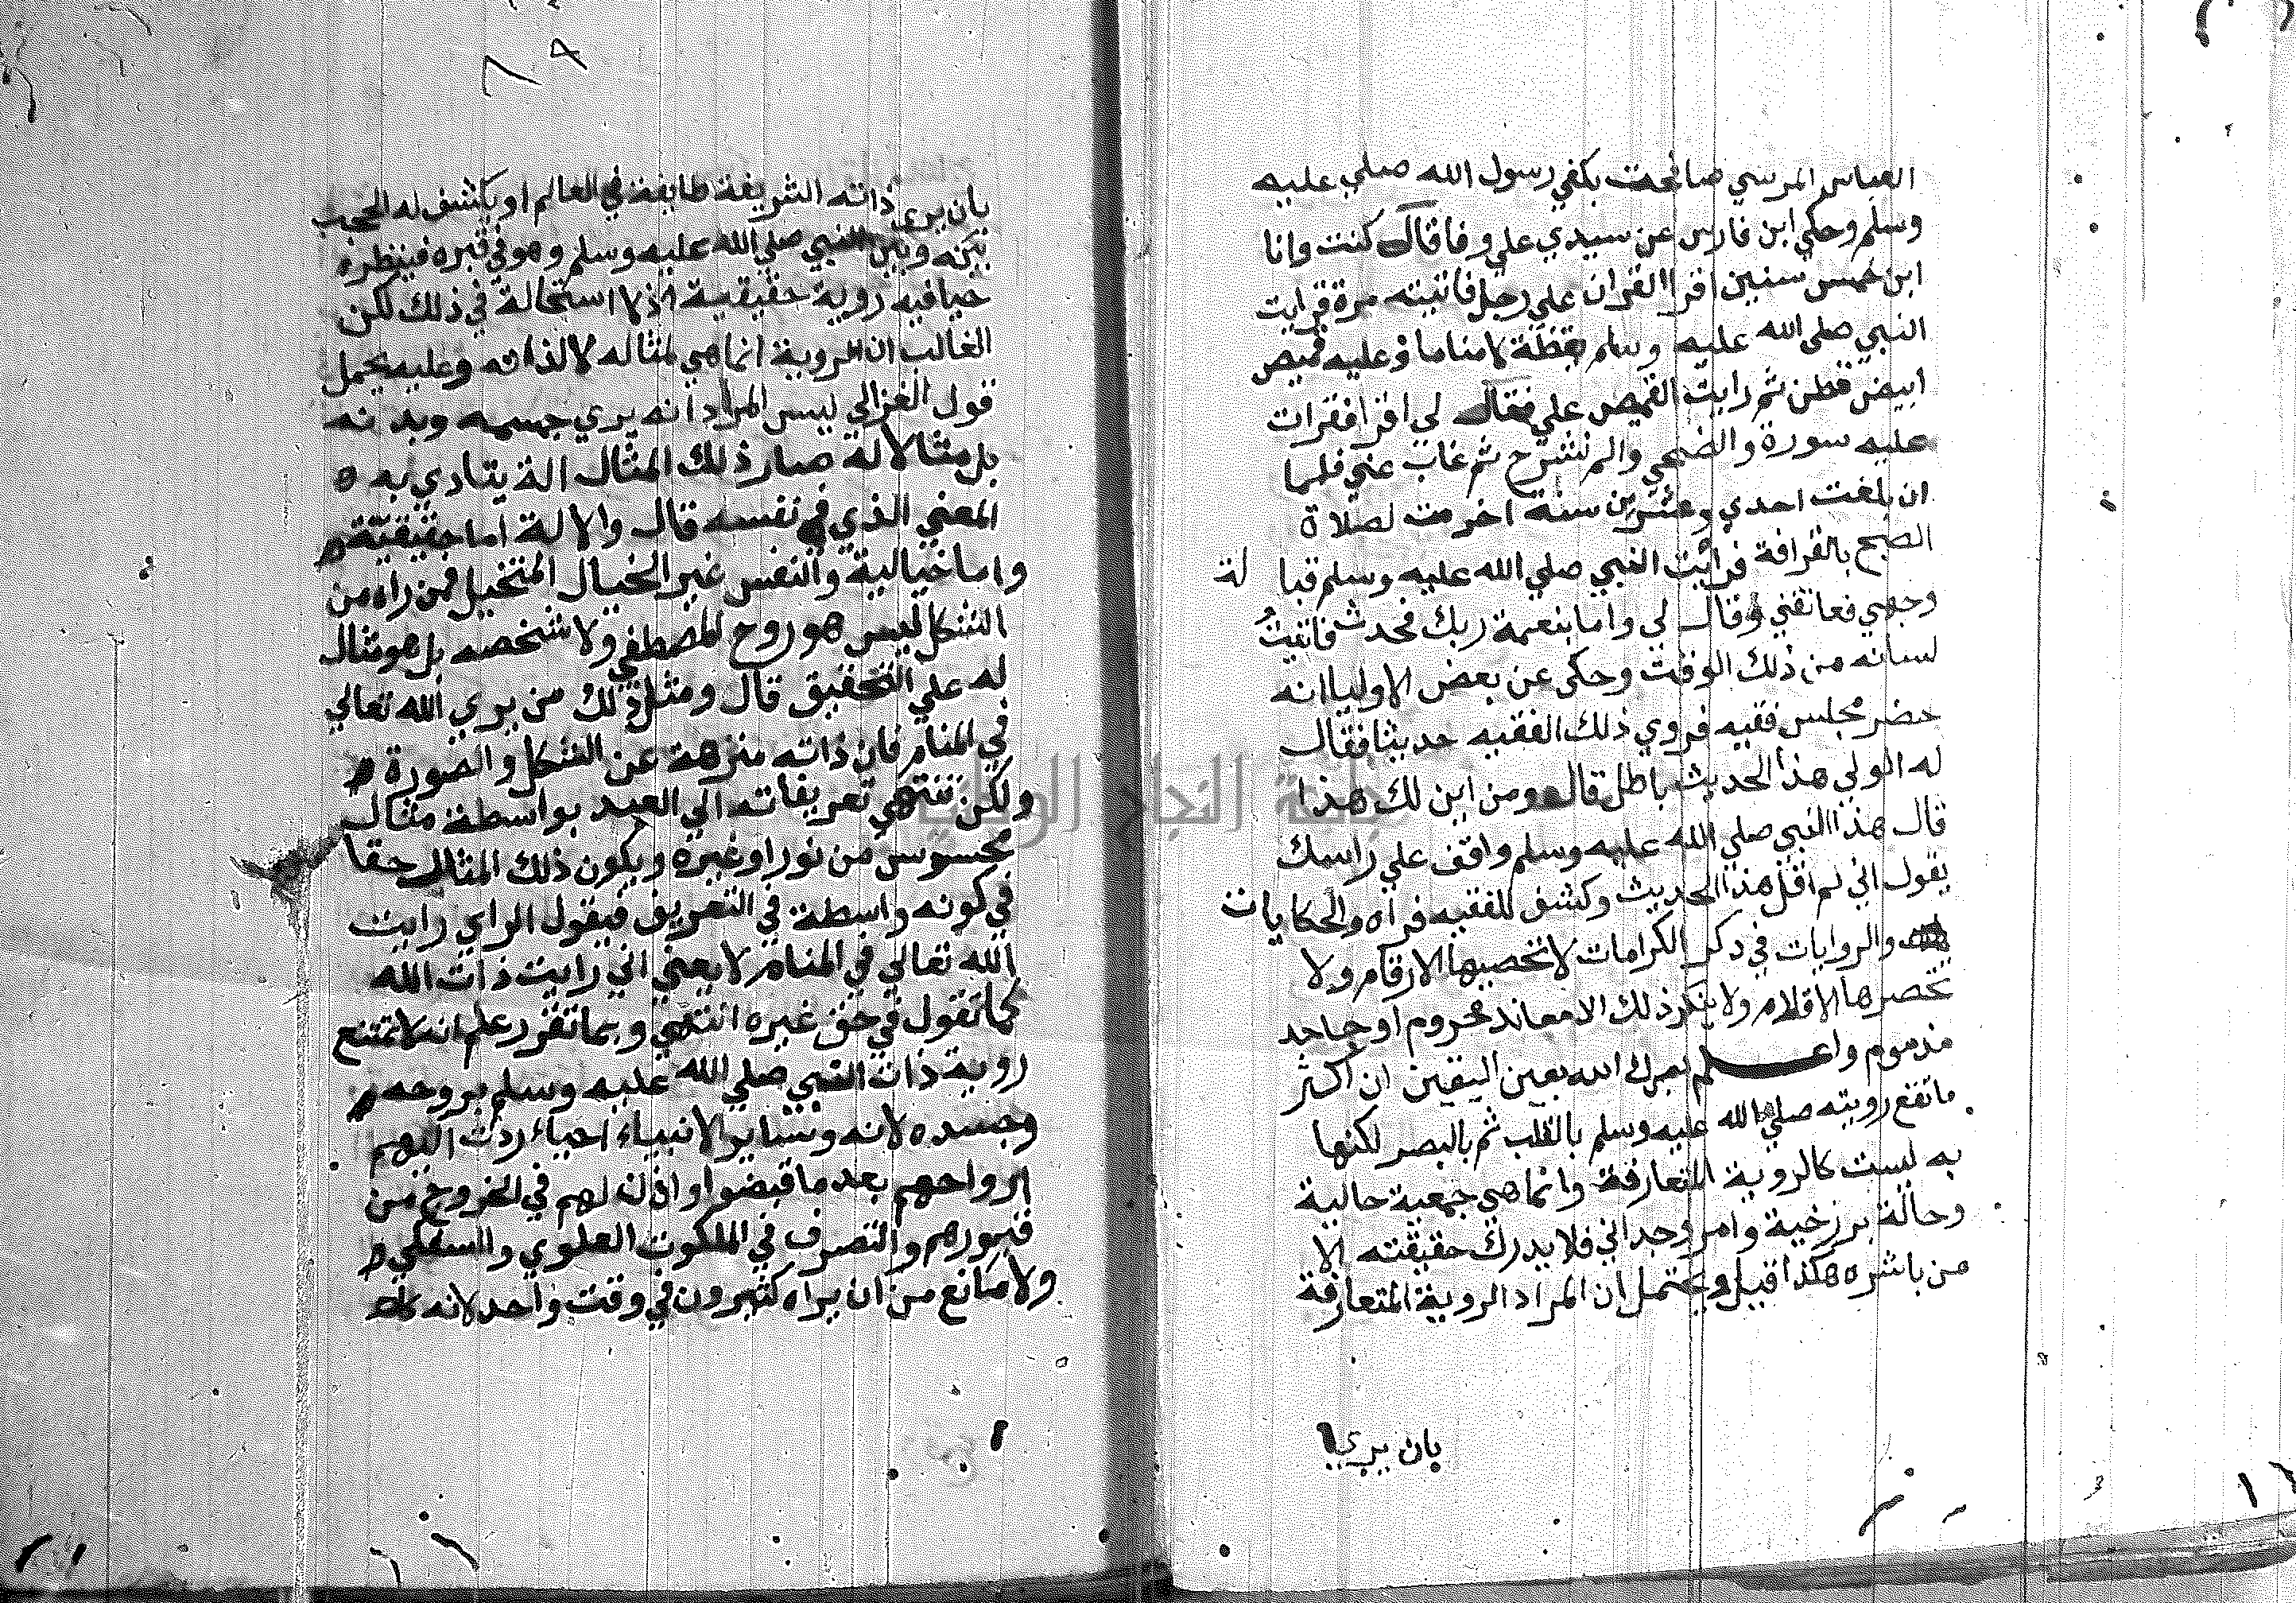 العباس المرسي صافحت بكفي رسول الله صلي عليه
وسلم وحكي ابن فارس عن سيدي علي وفا قال كنت وانا
ابن خمس سنين اقرا القران علي رجل فاتيته مرة فرايت
النبي صلى الله عليه وسلم يقظة لا مناما وعليه قميص
ابيض قطن ثم رايت القميص علي فقال لي اقرا فقرات
عليه سورة والضحي والم نشرح ثم غاب عني فلما
ان بلغت احدي وعشرين سنة احرمت لصلاة
الصبح بالقرافة فرايت النبي صلي الله عليه وسلم قبا لة
وجهي فعانقني وقال لي واما بنعمة ربك فحدث فاتيت
لسانه من ذلك الوقت وحكى عن بعض الاوليا انه
حضر مجلس فقيه فروي ذلك الفقيه حديثا فقال
له الولي هذا الحديث باطل قال ومن اين لك هذا
قال هذا النبي صلي الله عليه وسلم واقف علي راسك
يقول اني لم اقل هذا الحديث وكشف للفقيه فرآه والحكايات
والروايات في دكر الكرامات لا تحصيها الارقام ولا
تحصرها الاقلام ولا ينكر ذلك الا معاند محروم او جاحد
مذموم واعلم نصرك الله بعين اليقين ان اكثر
ما تقع رويته صلي الله عليه وسلم بالقلب ثم بالبصر لكنها
به ليست كالروية المتعارفة وانما هي جمعية حالية
وحالة برزخية وامر وجداني فلا يدرك حقيقته الا
من باشره هكذا قيل ويحتمل ان المراد الروية المتعارفة
بان يري
بان يرى ذاته الشريفة طايفة في العالم او يكشف له الحجب
بينه وبين النبي صلي الله عليه وسلم وهو في قبره فينظره
حيا فيه روية حقيقية اذ لا استحالة في ذلك لكن
الغالب ان الروية انما هي لمثاله لا لذاته وعليه يحمل
قول الغزالي ليس المراد انه يري جسمه وبدنه
بل مثالا له صار ذلك المثال الة يتادي به
المعني الذي في نفسه قال والالة اما حقيقية
واما خيالية والنفس غير الخيال المتخيل فمن راه من
الشكل ليس هو روح المصطفي ولا شخصه بل هو مثال
له علي التحقيق قال ومثل ذلك من يري الله تعالي
في المنام فان ذاته منزهة عن الشكل والصورة
ولكن تنتهي تعريفاته الي العبد بواسطة مثال
محسوس من نور او غيره ويكون ذلك المثال حقا
في كونه واسطة في التعريف فيقول الراي رايت
الله تعالي في المنام لا يعني اني رايت ذات الله
كما تقول في حق غيره انتهي وبما تقرر علم انه لا تمتنع
روية ذات النبي صلي الله عليه وسلم بروحه
وجسده لانه وساير الانبياء احياء ردت اليهم
ارواحهم بعد ما قبضوا واذن لهم في الخروج من
قبورهم والتصرف في الملكوت العلوي والسفلي
ولا مانع من ان يراه كثيرون في وقت واحد لانه